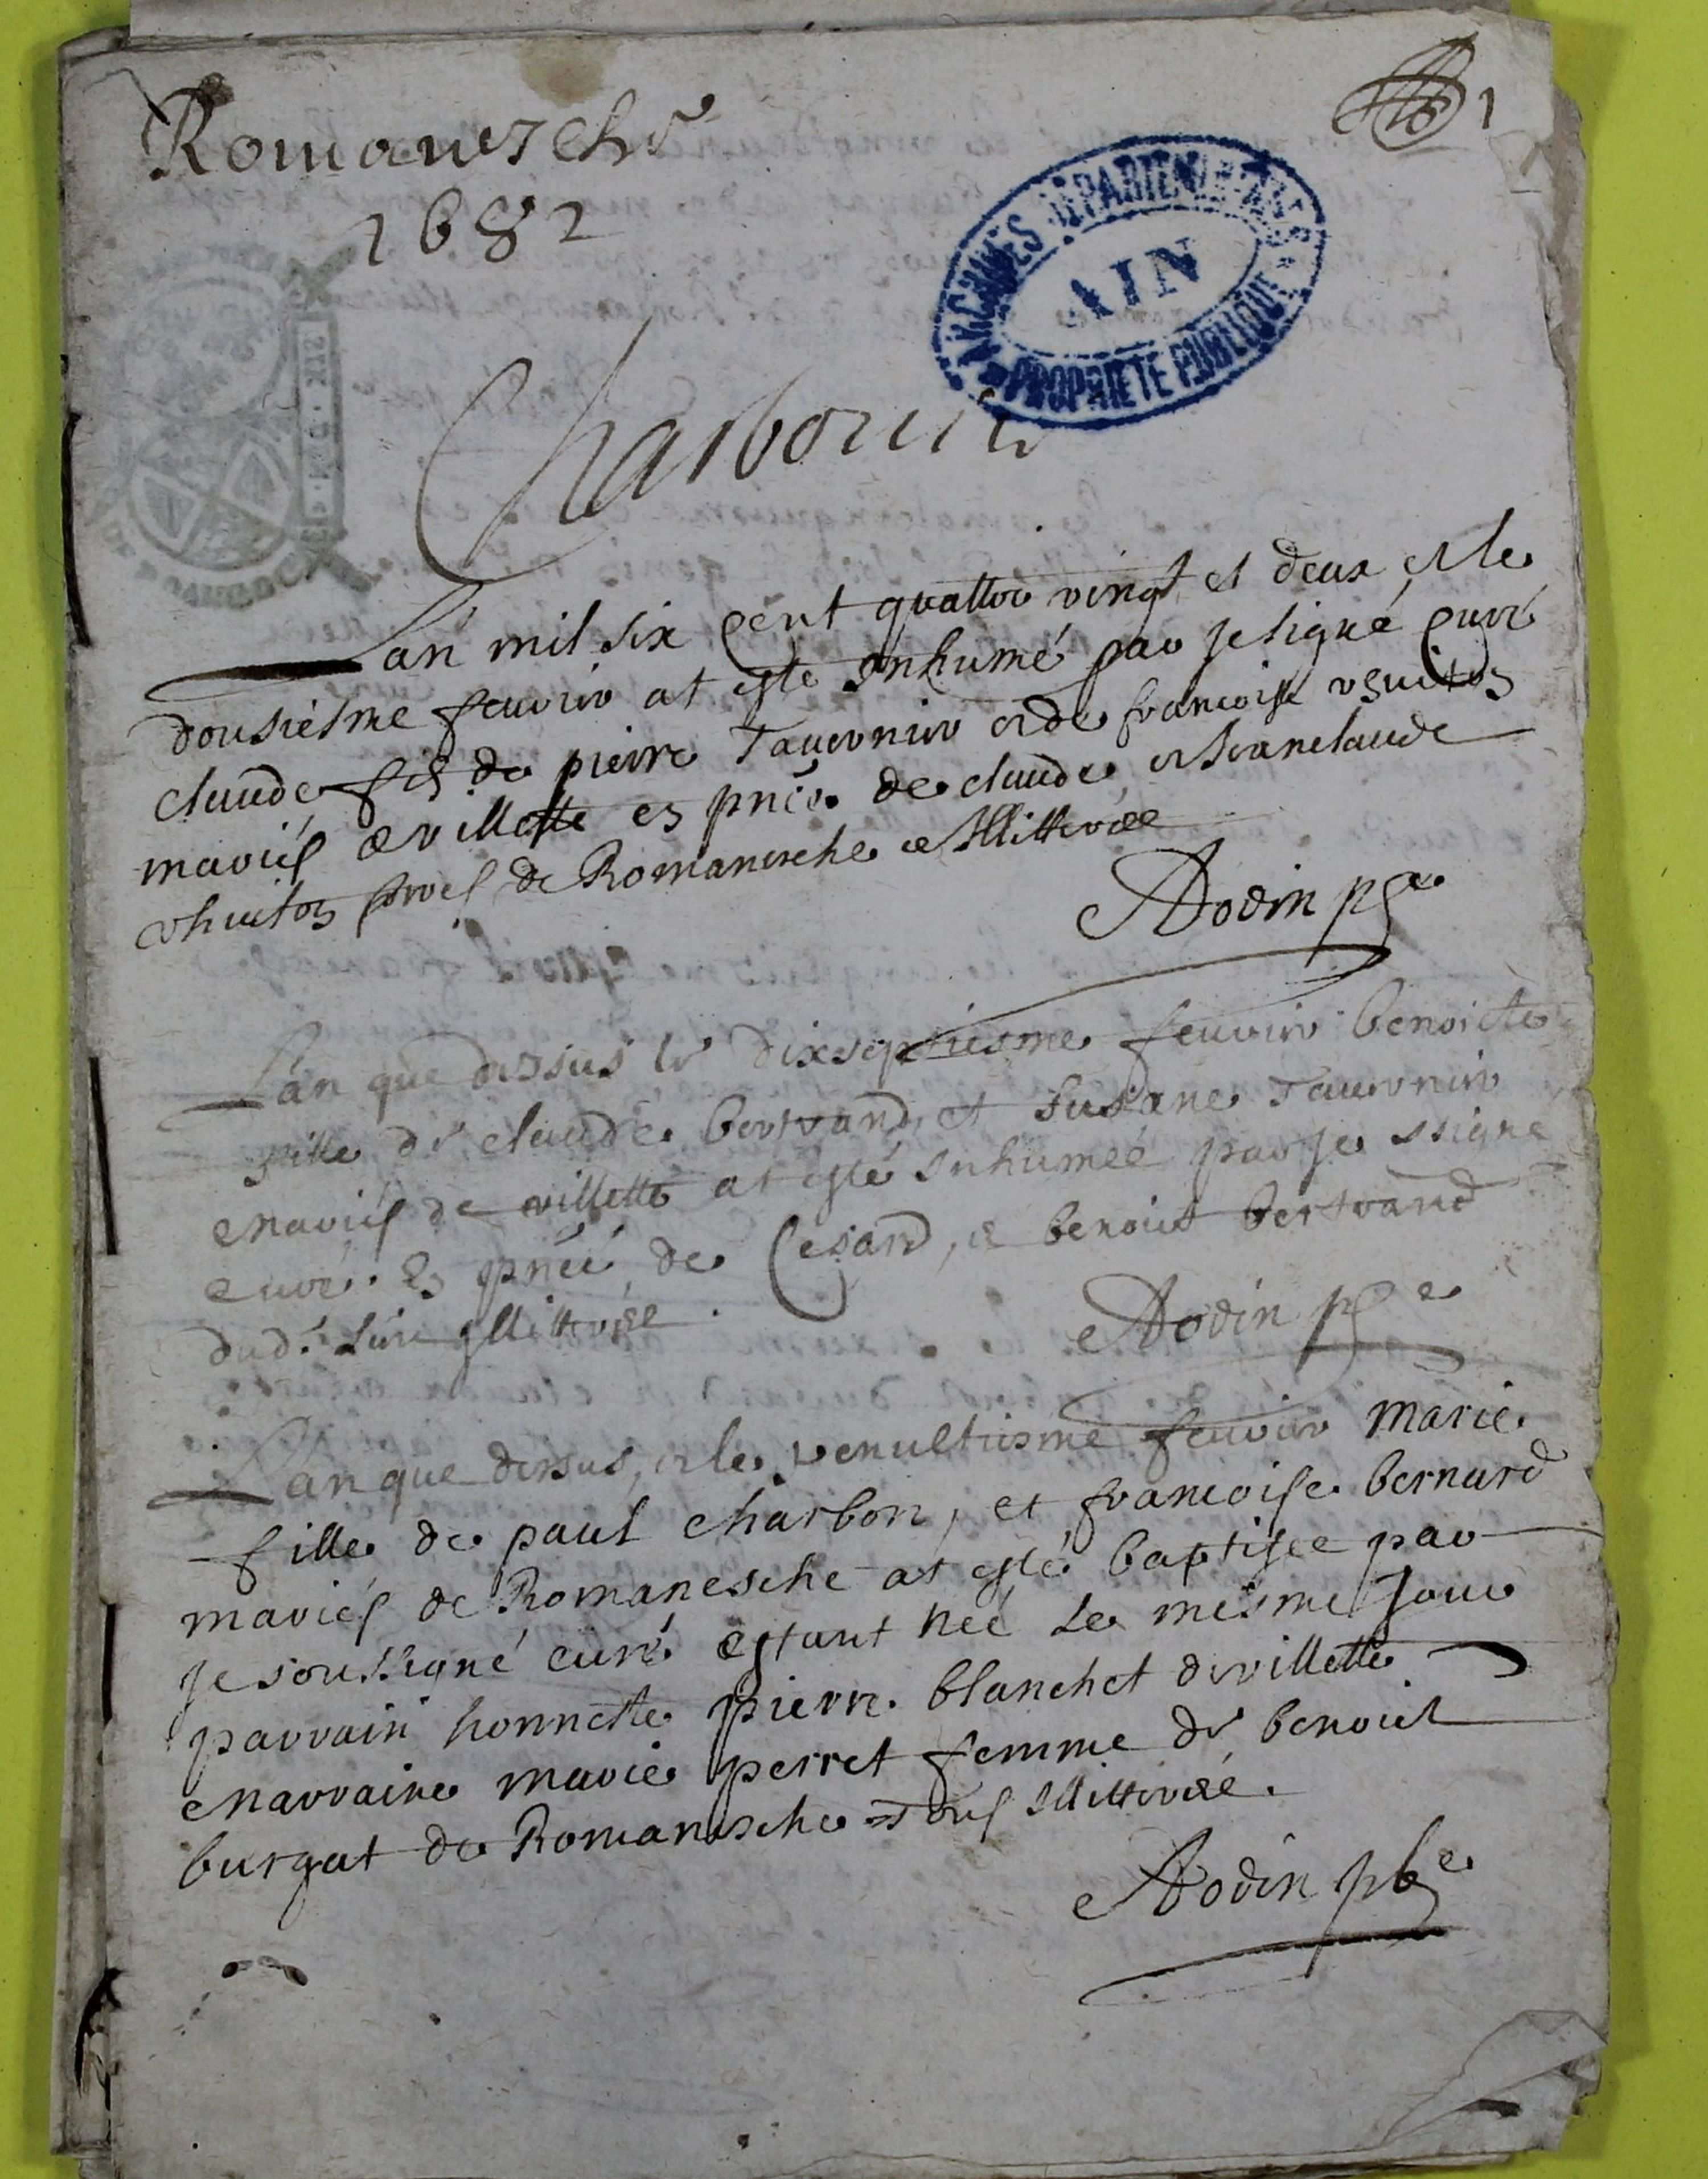 1
Romanesche
1682
ARCHIVES DÉPARTEMENTALES
AIN
PROPRIÉTÉ PUBLIQUE
Charbonnier
Lan mil six cent quattre vingt et deux et le
dousiesme feuvrier at esté inhumé par je signé curé
claude fils de pierre Tavernier et de francoise
mariés de villette en pnce de claude et Jean claude
de Romanesche illitterée
Lan que dessus le dixseptiesme feuvrier benoicte
fille de claude bertrand et Susane Tavernier
mariés de villette at esté inhumée par je ssigne
curé en pnce de Cesard, e benoict bertrand
dud. lieu illitterée
Lan que dessus, et le penultiesme feuvrier Marie
fille de paul Charbon, et francoise bernard
mariés de Romanesche at esté baptisée par
je soussigné curé estant née le mesme jour
parrain honneste pierre blanchet de villette
marraine marie perret femme de benoict
burgat de Romanesche tous illitterée.